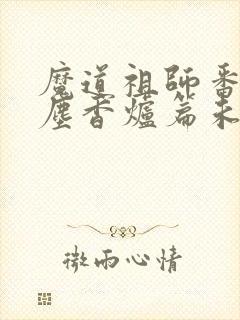 魔道祖師番
塵香爐篇未
微雨心情